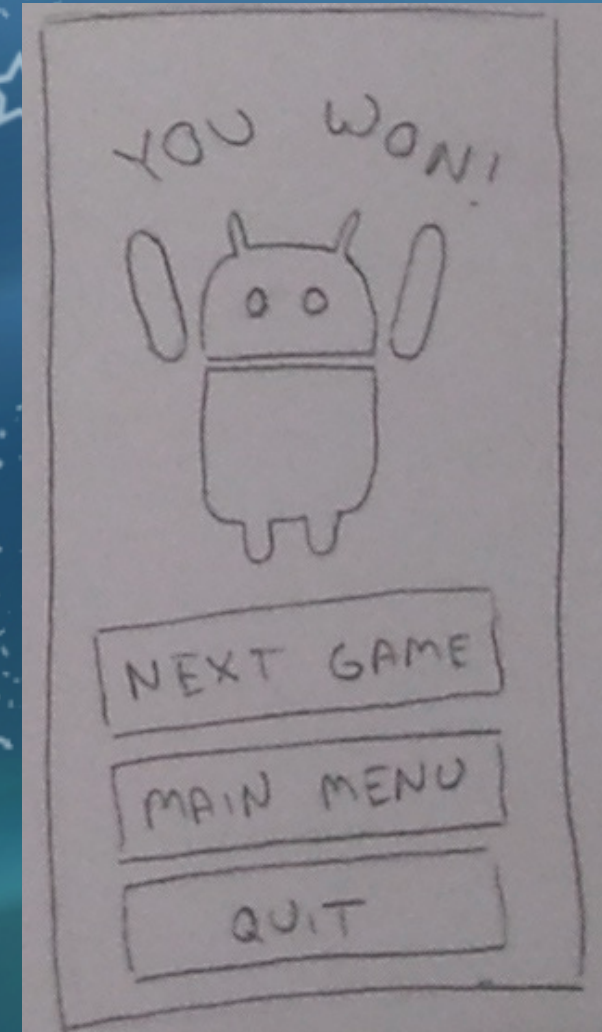 YOU WON!
NEXT GAME
MAIN MENU
QUIT